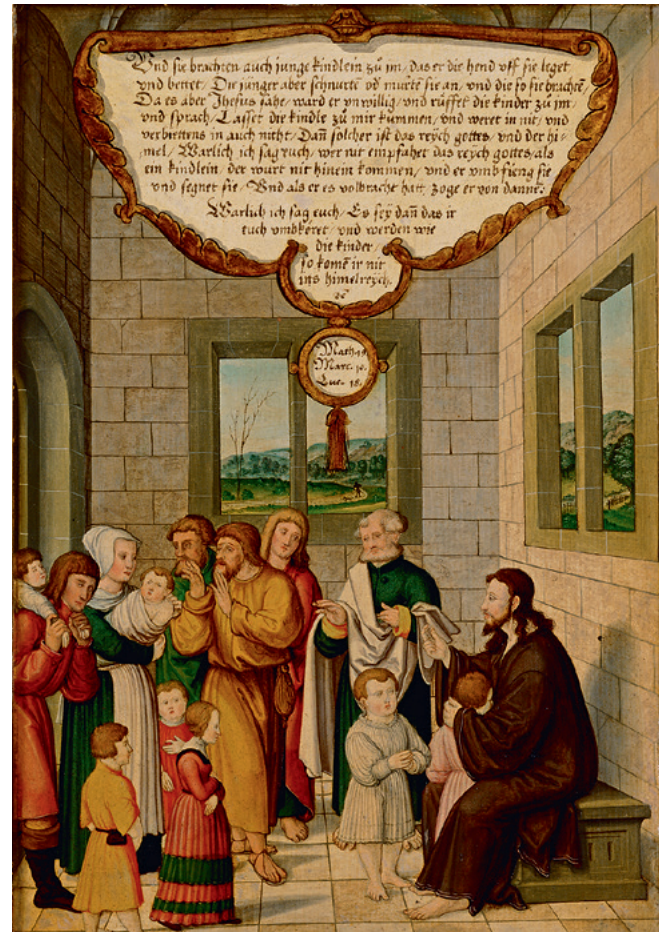 Vnd sie brachten auch junge kindlein zů im / das er die hend vff sie leget
vnd bettet / Die jünger aber schnurtē od murtē sie an / vnd die so sie brachtē
Da es aber Jhesus sahe / ward er vnwillig / vnd rüffet die kinder zů im /
vnd sprach / Lasset die kindle zů mir kummen / vnd weret in nit / vnd
verbiettens in auch nitht / Dañ solcher ist das reÿch gottes / vnd der hi=
mel / Warlich ich sag euch / wer nit empfahet das reÿch gottes / als
ein kindlein / der wurt nit hinein kommen / vnd er vmbfieng sie
vnd segnet sie / Vnd als er es volbracht hatt / zoge er von danne :
Warlich ich sag euch / Es seÿ dañ das ir
euch vmbkeret / vnd werden wie
die kinder /
so komē ir nit
ins himelreÿch .
Math. 19
Marc. 10.
Luc. 18.